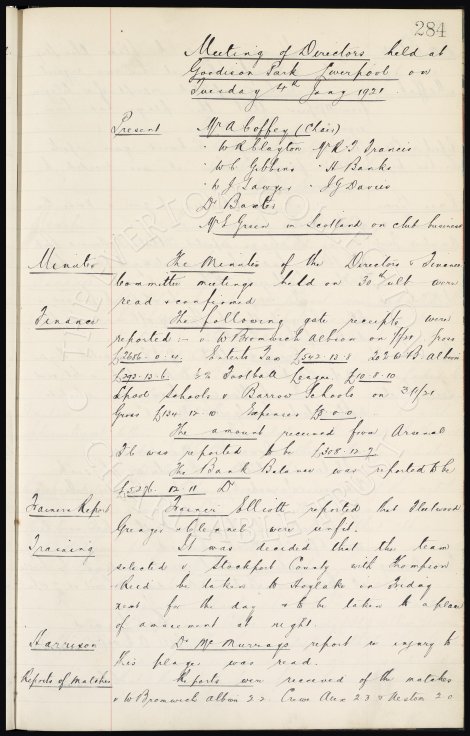 284
Meeting of Directors held at
Goodison Park Liverpool on
Tuesday 4th Jany 1921.
Present Mr A Coffey (Chair)
" W R Clayton Mr R. T Francis
" W C Gibbins " H Banks
" W J Sawyer " J G Davies
Dr Baxter
Mr E Green in Scotland on club business
Minutes The Minutes of the Directors & Finance
Committee meetings held on 30th ult were
read & confirmed
Finance The following gate receipts were
reported :- v W Bromwich Albion on 1/1/21, Gross
Enterts Tax £542-13-8 20% W B. Albion
£292-13-6. Football League £10-8-10
L'pool Schools v Barrow Schools on 3/1/21
Gross £134-12-10 Expenses
The amount received from Arsenal
F.C was reported to be £308-12-7
The Bank Balance was reported to be
Dr
Trainers Report Trainer Elliott reported that Fleetwood
Grenyer & were unfit.
Training It was decided that the team
selected v Stockport County with Thompson
& Reid be taken to Hoylake on Friday
next for the day & to be taken to a place
of amusement at night.
Harrison Dr McMurrays report re injury to
this player was read.
Reports of Matches Reports were received of the matches
v W Bromwich Albion 2 2. Crewe Alex 2 3 & Neston 2 0